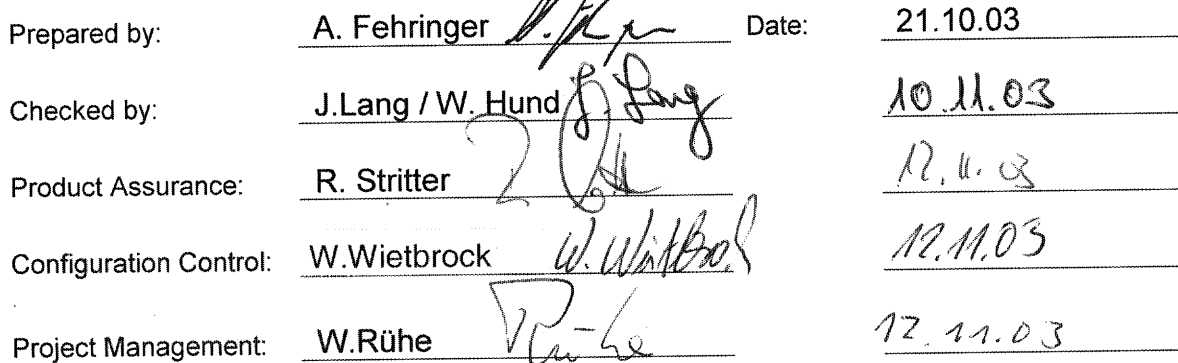 Prepared by: A. Fehringer Date: 21.10.03
Checked by: J.Lang / W. Hund J. Lang 10.11.03
Product Assurance: R. Stritter 12.11.03
Configuration Control: W.Wietbrock W. Wietbrock 12.11.03
Project Management: W.Rühe Rühe 12.11.03